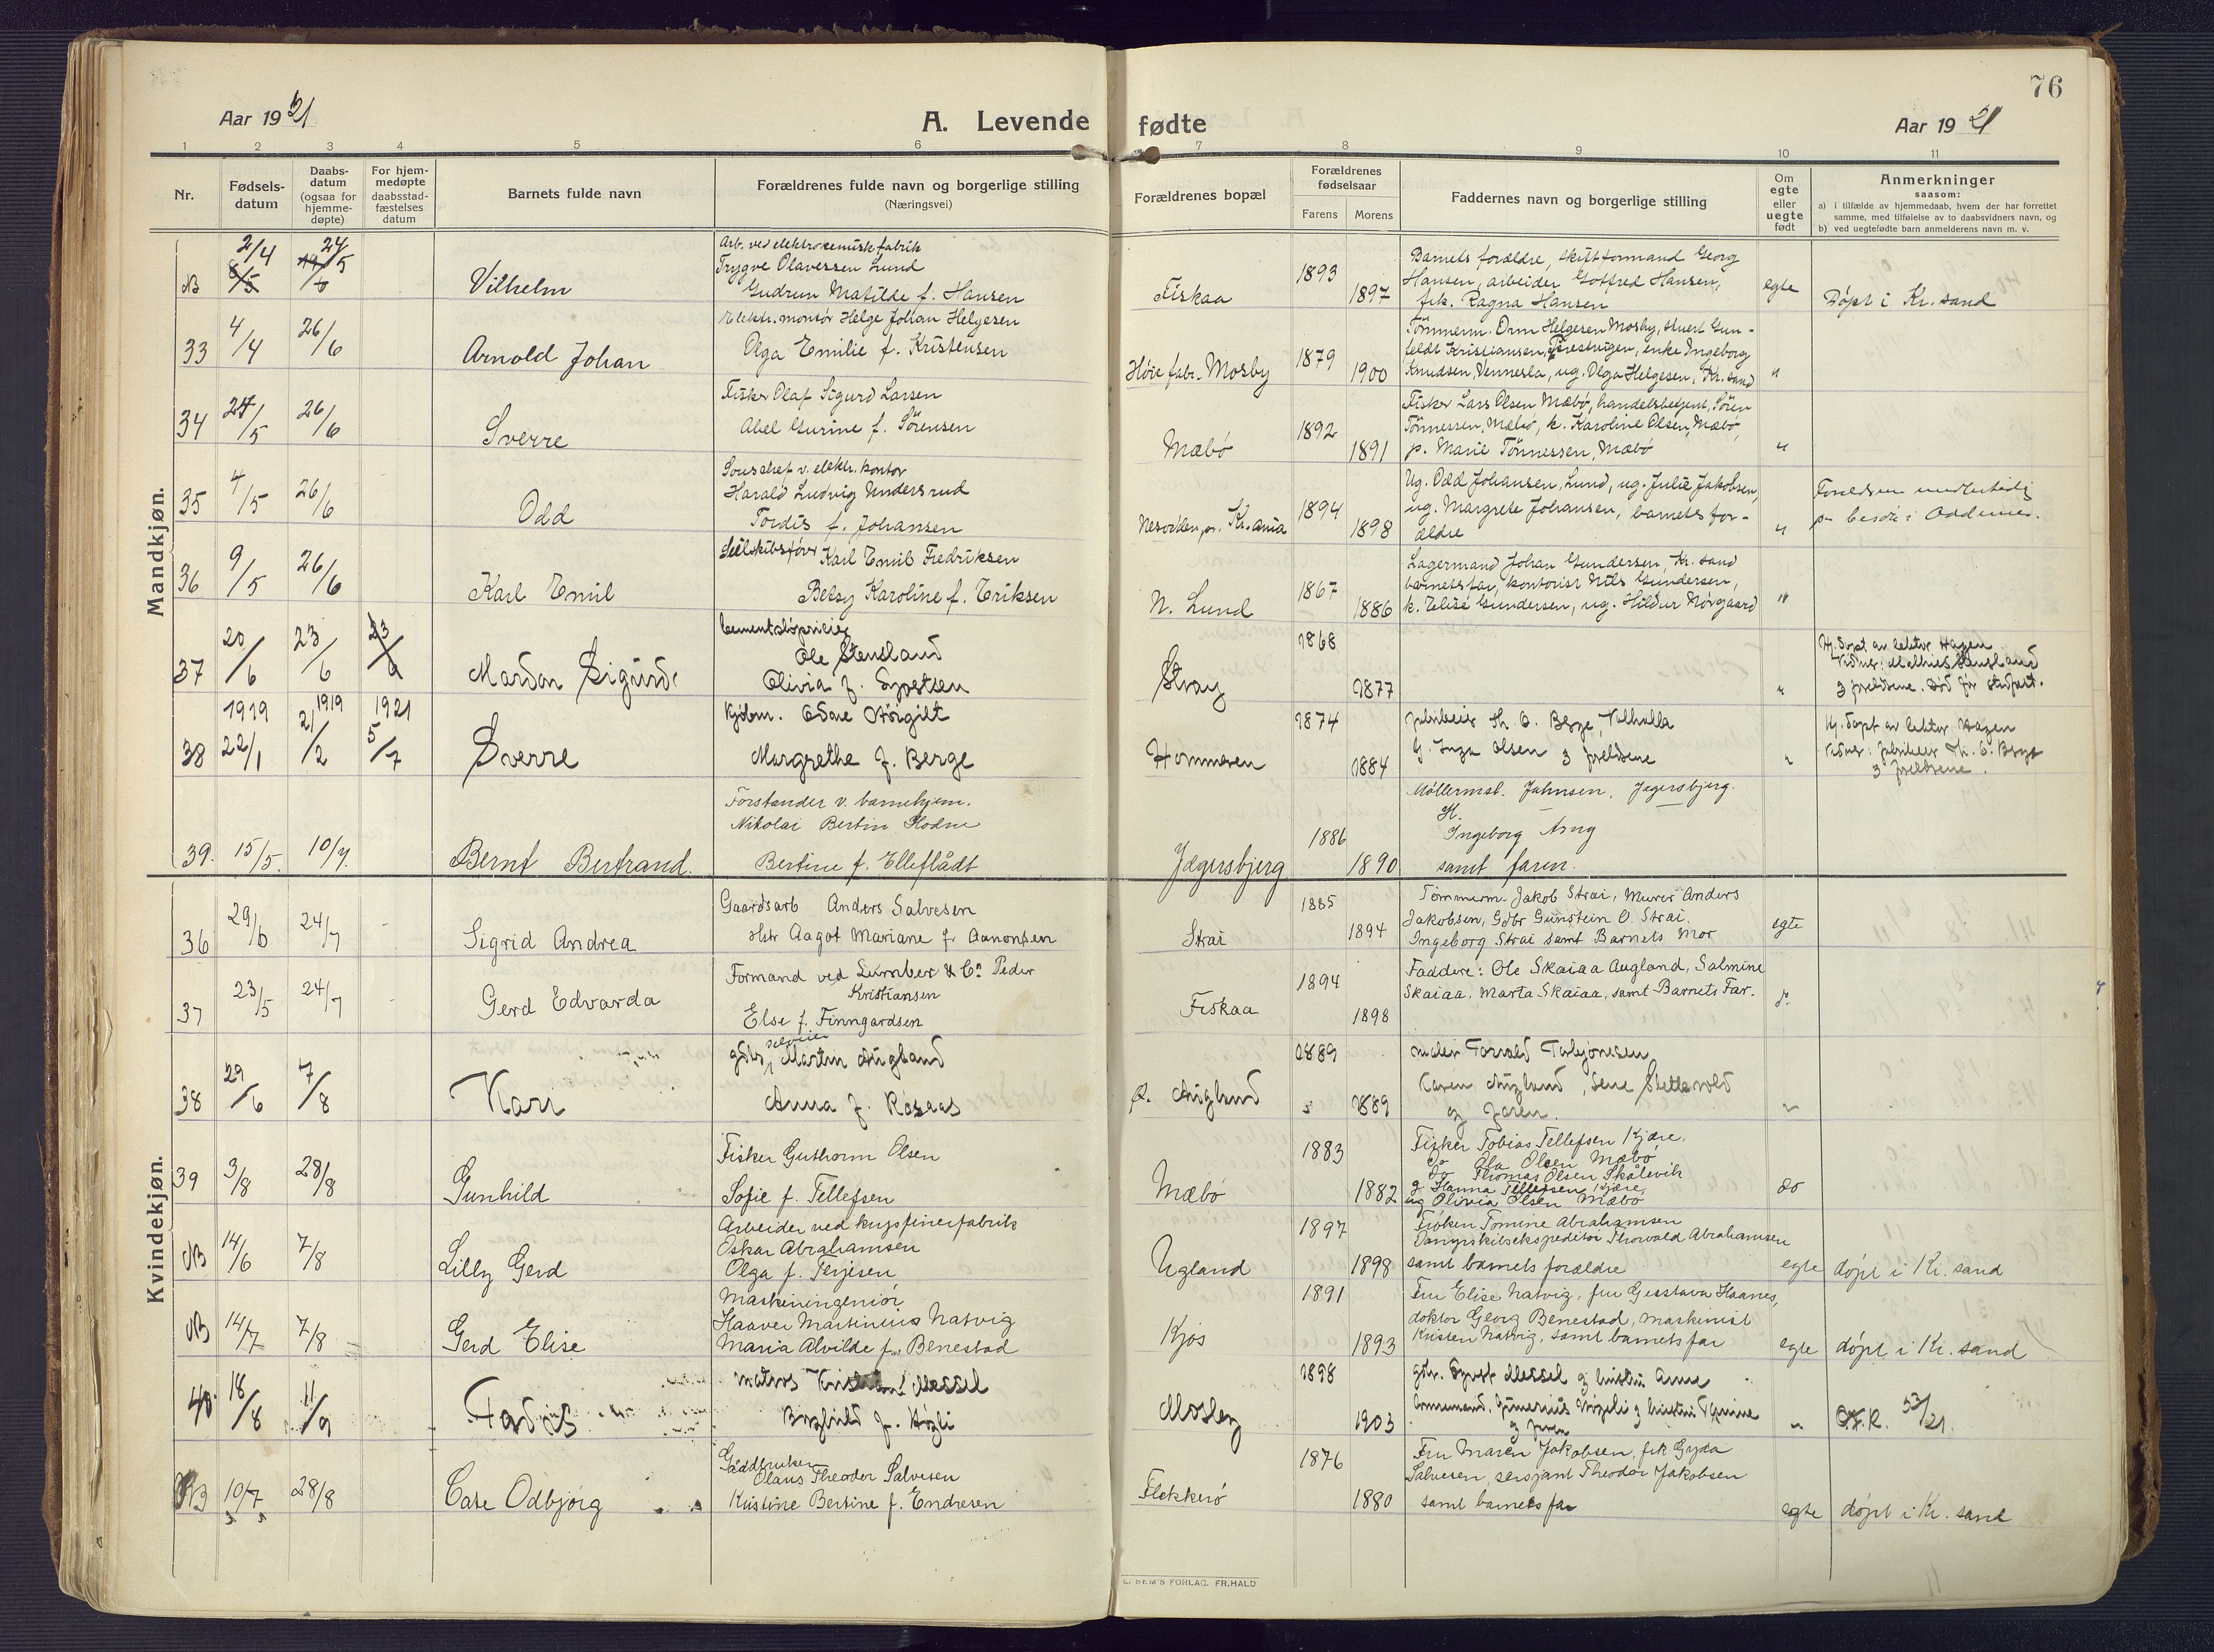 76
Aar 1921
A. Levende fødte
Aar 1921
1 2 3 4 5 6 7 8 9 10 11
Nr.
Fødsels-
datum
Daabs-
datum
(ogsaa for
hjemme-
døpte)
For hjem-
medøpte
daabsstad-
fæstelses
datum
Barnets fulde navn
Forældrenes fulde navn og borgerlige stilling
(Næringsvei)
Forældrenes bopæl
Forældrenes
fødselsaar
Farens Morens
Faddernes navn og borgerlige stilling
Om
egte
eller
uegte
født
Anmerkninger
saasom:
a) i tilfælde av hjemmedaab, hvem der har forrettet
samme, med tilføielse av to daabsvidners navn, og
b) ved uegtefødte barn anmelderens navn m. v.
Mandkjøn.
NB 2/4 24/5
Vilhelm
Arb. ved elektrokemisk fabrik
Trygve Olavessen Lund
Gudrun Matilde f. Hansen
Fiskaa
1893
1897
Barnets forældre, skiftformand Georg
Hansen, arbeider Gotfred Hansen,
frk. Ragna Hansen
egte
Døpt i Kr. sand
33 4/4 26/6
Arnold Johan
Elektr. montør Helge Johan Helgesen
Olga Emilie f. Kristensen
Høie fabr. Mosby
1879
1900
Tømmerm. Orm Helgesen Mosby, stuert Gun-
feldt Kristiansen, enke Ingeborg
Knudsen, Vennesla, ug. Olga Helgesen, Kr. sand
"
34 24/5 26/6
Sverre
Fisker Olaf Sigurd Larsen
Abel Gurine f. Sörensen
Mæbö
1892
1891
Fisker Lars Olsen Mæbö, handelsbetjent Sören
Tönnessen, Mæbö, k. Karoline Olsen, Mæbö,
p. Marie Tönnessen, Mæbö
"
35 4/5 26/6
Odd
Souschef v. elektr. kontor
Harald Ludvig Undersrud
Tordis f. Johansen
Nesodden pr. Kr.ania
1894
1898
Ug. Odd Johansen, Lund, ug. Julie Jakobsen,
ug. Margrete Johansen, barnets for-
ældre
"
p. besøk i Oddernes.
36 9/5 26/6
Karl Emil
Karl Emil Fredriksen
Betsy Karoline f. Eriksen
N. Lund
1867
1886
Lagermand Johan Gundersen, Kr. sand
barnets far, kontorist Nils Gundersen,
k. Elise Gundersen, ug. Hildur Nörgaard
"
37 20/6 23/6 23/6
Mardon Sigurd
Ole Stensland
Olivia f. Syvertsen
Stray
1868
1877
"
Hj. døpt av lektor Hagen
Vidner: Mathies Stensland
z foreldrene. Død før stadfest.
38 1919 22/1 1919 2/2 1921 5/7
Sverre
Kjøbm. Odne Nørgilt
Margrethe f. Berge
Hommeren
1874
1884
fabrikeier Th. O. Berge, Valhalla
G. Inga Olsen z foreldrene
"
Hj. døpt av lektor Hagen
Vidner: fabrikeier Th. O. Berge
z foreldrene.
39. 15/5. 10/7.
Bernt Bertrand.
Forstander v. barnehjem.
Nikolai Bertin Hodne
Bertine f. Elleflådt
Jægersbjerg
1886
1890
Møllermst. Jahnsen, Jægersbjerg.
H.
Ingeborg Arng
samt faren.
Kvindekjøn.
36 29/6 24/7
Sigrid Andrea
Gaardsarb Anders Salvesen
Hstr Aagot Mariane f. Aanonsen
Strai
1885
1894
Tømmerm. Jakob Strai, Murer Anders
Jakobsen, Gdbr Gunstein O. Strai,
Ingeborg Strai samt Barnets Mor
egte
37 23/5 24/7
Gerd Edvarda
Formand ved Lumber & Co Peder
Kristiansen
Else f. Finngardsen
Fiskaa
1894
1898
Faddere: Ole Skaiaa Augland, Salmine
Skaiaa, Marta Skaiaa, samt Barnets Far.
do
38 29/6 7/8
Kari
gdbr, selveier Martin Augland
Anna f. Rosaas
Ø. Augland
1889
1889
maler Torvald Torbjørnsen
Karen Augland, Lene Slettevold
og faren.
"
39 3/8 28/8
Gunhild
Fisker Guthorm Olsen
Sofie f. Tellefsen
Mæbö
1883
1882
Fisker Tobias Tellefsen Kjære.
Do Ola Olsen Mæbö
Do Thomas Olsen Skålevik
g Hanna Tellefsen Kjære,
ug Olivia Olsen Mæbö
do
NB 14/6 7/8
Lilly Gerd
Arbeider ved krysfinerfabrik
Oskar Abrahamsen
Olga f. Terjesen
Ugland
1897
1898
Frøken Tomine Abrahamsen
Dampskibsekspeditør Thorvald Abrahamsen
samt barnets forældre
egte
døpt i Kr. sand
NB 14/7 7/8
Gerd Elise
Maskiningeniør
Haaver Martinius Natvig
Maria Alvilde f. Benestad
Kjos
1891
1893
Fru Elise Natvig, fru Gusstava Haanes,
doktor Georg Benestad, maskinist
Kristen Natvig, samt barnets far
egte
døpt i Kr. sand
40. 18/8 11/9
matros Kristian Messel
Borghild f. Høgli
Mosby
1898
1903
gdr. Syvert Messel z hustru Anne
z faren
"
53/21.
NB 10/7 28/8
Care Odbjørg
Gårdbruker
Olaus Theodor Salvesen
Kristine Bertine f. Endresen
Flekkerø
1876
1880
Fru Maren Jakobsen, frk Gyda
Salvesen, sersjant Theodor Jakobsen
samt barnets far
egte
døpt i Kr. sand
E. SEM'S FORLAG. FR.HALD